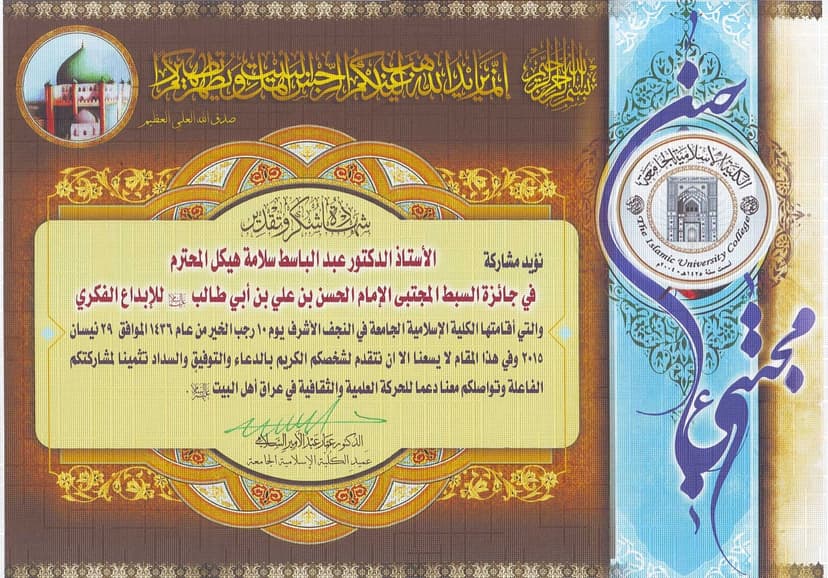 بسم الله الرحمن الرحيم
إنما يريد الله ليذهب عنكم الرجس أهل البيت ويطهركم تطهيرا
صدق الله العلي العظيم
شهادة شكر وتقدير
نؤيد مشاركة الأستاذ الدكتور عبد الباسط سلامة هيكل المحترم
في جائزة السبط المجتبى الإمام الحسن بن علي بن أبي طالب عليه السلام للإبداع الفكري
والتي أقامتها الكلية الإسلامية الجامعة في النجف الأشرف يوم ١٠ رجب الخير من عام ١٤٣٦ الموافق ٢٩ نيسان
٢٠١٥ وفي هذا المقام لا يسعنا الا ان نتقدم لشخصكم الكريم بالدعاء والتوفيق والسداد تثمينا لمشاركتكم
الفاعلة وتواصلكم معنا دعما للحركة العلمية والثقافية في عراق أهل البيت عليهم السلام
الدكتور عمار عبد الأمير السلامي
عميد الكلية الإسلامية الجامعة
الكلية الإسلامية الجامعة
The Islamic University College
أسست سنة ١٤٢٥هـ-٢٠٠٤م
حسن
مجتبى